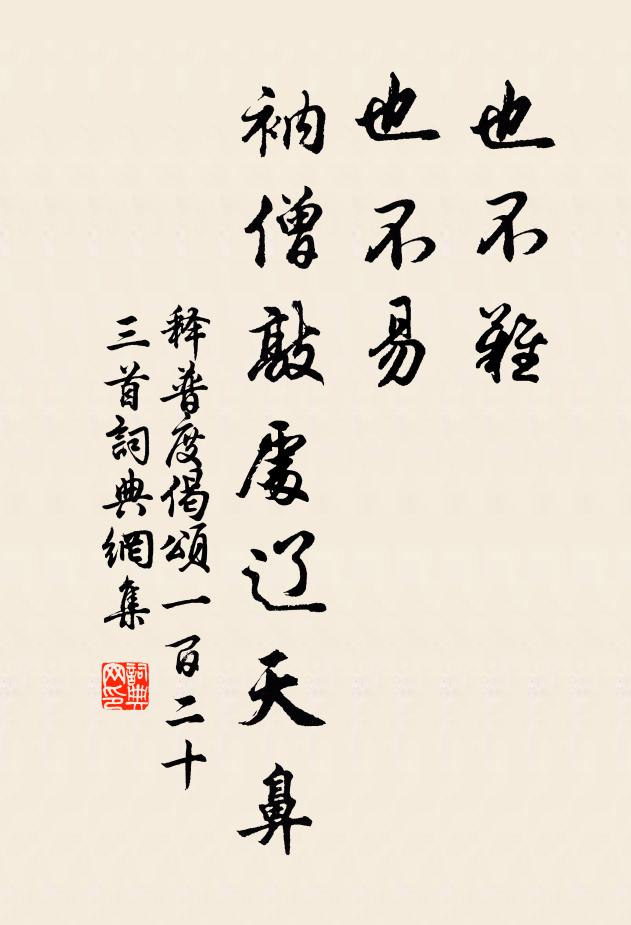 也不難
也不易
衲僧敲處辽天鼻
释普度偈頌一百二十
三首詞典網集
詞典
网印